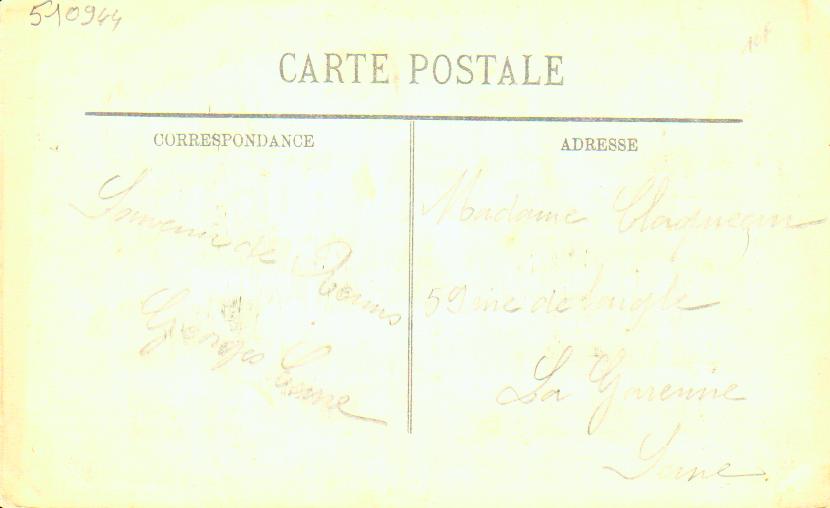 510944
CARTE POSTALE
CORRESPONDANCE
Souvenir de Reims
Georges
ADRESSE
Madame
59 rue de Laigle
La Garenne
Seine